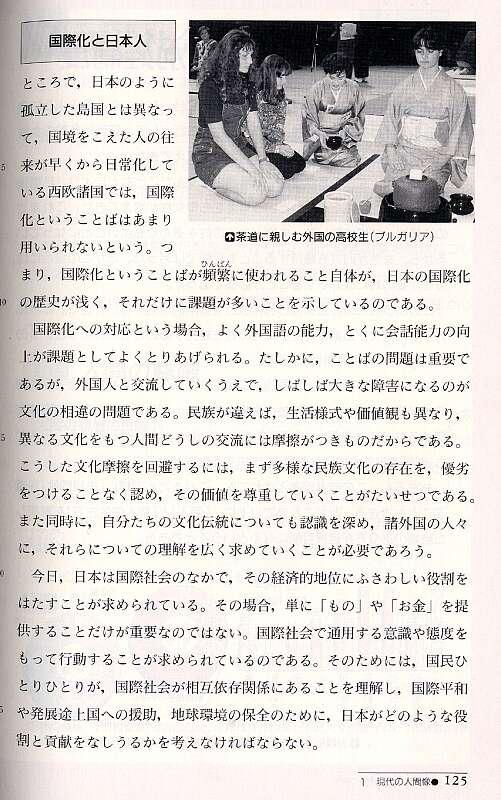 国際化と日本人
ところで，日本のように
孤立した島国とは異なっ
て，国境をこえた人の往
5
来が早くから日常化して
いる西欧諸国では，国際
化ということばはあまり
用いられないという。つ
茶道に親しむ外国の高校生（ブルガリア）
ひんぱん
まり，国際化ということばが頻繁に使われること自体が，日本の国際化
10
の歴史が浅く，それだけに課題が多いことを示しているのである。
国際化への対応という場合，よく外国語の能力，とくに会話能力の向
上が課題としてよくとりあげられる。たしかに，ことばの問題は重要で
あるが，外国人と交流していくうえで，しばしば大きな障害になるのが
文化の相違の問題である。民族が違えば，生活様式や価値観も異なり，
5
異なる文化をもつ人間どうしの交流には摩擦がつきものだからである。
こうした文化摩擦を回避するには，まず多様な民族文化の存在を，優劣
をつけることなく認め，その価値を尊重していくことがたいせつである。
また同時に，自分たちの文化伝統についても認識を深め，諸外国の人々
に，それらについての理解を広く求めていくことが必要であろう。
0
今日，日本は国際社会のなかで，その経済的地位にふさわしい役割を
はたすことが求められている。その場合，単に「もの」や「お金」を提
供することだけが重要なのではない。国際社会で通用する意識や態度を
もって行動することが求められているのである。そのためには，国民ひ
とりひとりが，国際社会が相互依存関係にあることを理解し，国際平和
5
や発展途上国への援助，地球環境の保全のために，日本がどのような役
割と貢献をなしうるかを考えなければならない。
1 現代の人間像●125